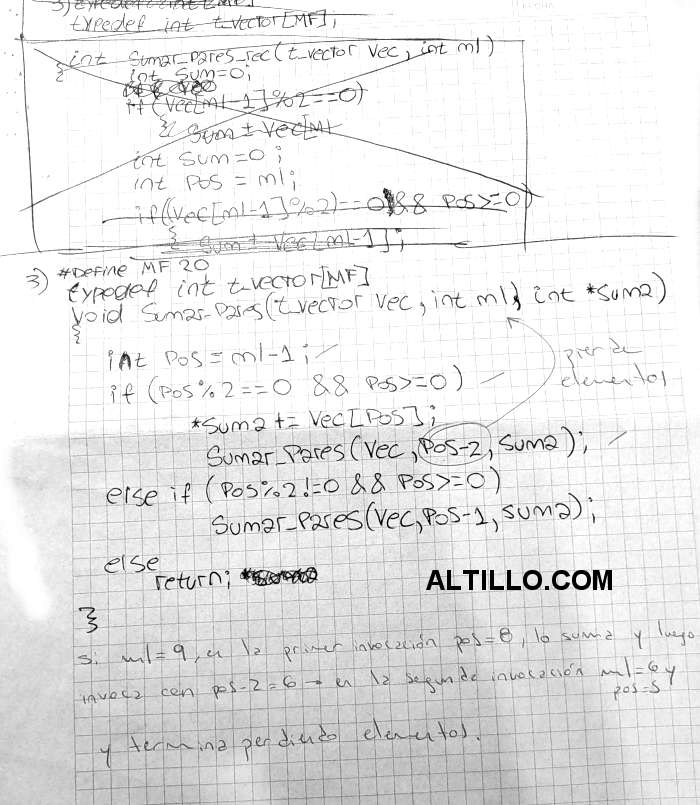 3) typedef int [MF];
typedef int t_vector[MF];
int Sumar_Pares_rec(t_vector vec, int ml)
{
int sum=0;
if (vec[ml-1]%2==0)
{ sum + vec[ml
int sum=0;
int pos = ml;
if((vec[ml-1]%2)==0 && pos>=0)
{ sum + vec[ml-1];
3) #define MF 20
typedef int t_vector[MF]
void Sumar_Pares(t_vector vec, int ml, int *suma)
{
int pos = ml-1;
pierde
if (pos%2==0 && pos>=0)
elementos
*suma += vec[pos];
Sumar_Pares(vec, pos-2, suma);
else if (pos%2!=0 && pos>=0)
Sumar_Pares(vec, pos-1, suma);
else
return;
ALTILLO.COM
}
si ml=9, en la primer invocación pos=8, lo suma y luego
invoca con pos-2=6 → en la segunda invocación ml=6 y
pos=5
y termina perdiendo elementos.